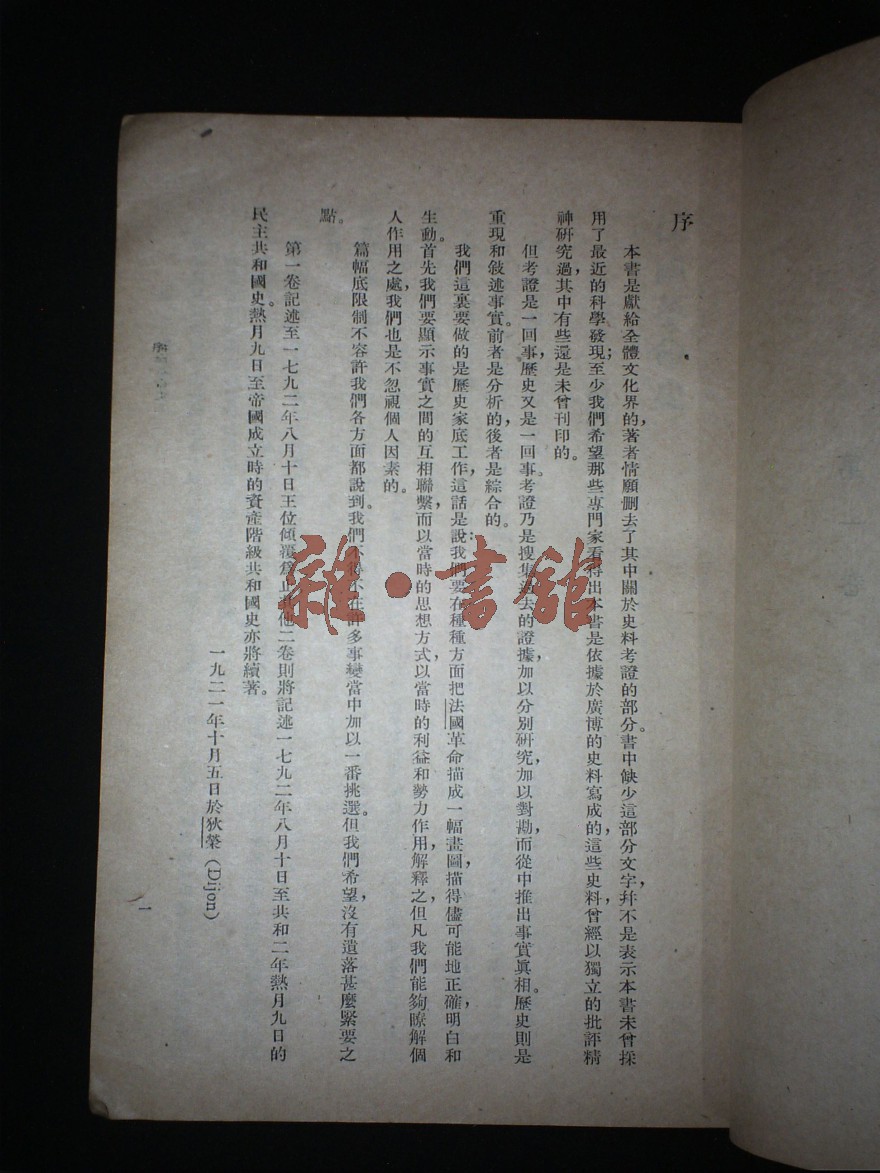 序
本書是獻給全體文化界的，著者情願刪去了其中關於史料考證的部分。書中缺少這部分文字，幷不是表示本書未曾採
用了最近的科學發現；至少我們希望那些專門家看得出本書是依據於廣博的史料寫成的，這些史料曾經以獨立的批評精
神研究過，其中有些還是未曾刊印的。
但考證是一回事，歷史又是一回事。考證乃是搜集過去的證據，加以分別研究，加以對勘，而從中推出事實眞相。歷史則是
重現和敘述事實。前者是分析的，後者是綜合的。
我們這裏要做的是歷史家底工作，這話是說：我們要在種種方面把法國革命描成一幅畫圖，描得儘可能地正確，明白和
生動。首先我們要顯示事實之間的互相聯繫，而以當時的思想方式，以當時的利益和勢力作用，解釋之，但凡我們能夠瞭解個
人作用之處，我們也是不忽視個人因素的。
篇幅底限制不容許我們各方面都說到。我們不得不在許多事變當中加以一番挑選。但我們希望，沒有遺落甚麼緊要之
點。
第一卷記述至一七九二年八月十日王位傾覆爲止，其他二卷則將記述一七九二年八月十日至共和二年熱月九日的
民主共和國史。熱月九日至帝國成立時的資產階級共和國史亦將續著。
一九二一年十月五日於狄榮（Dijon）
一
雜·書館